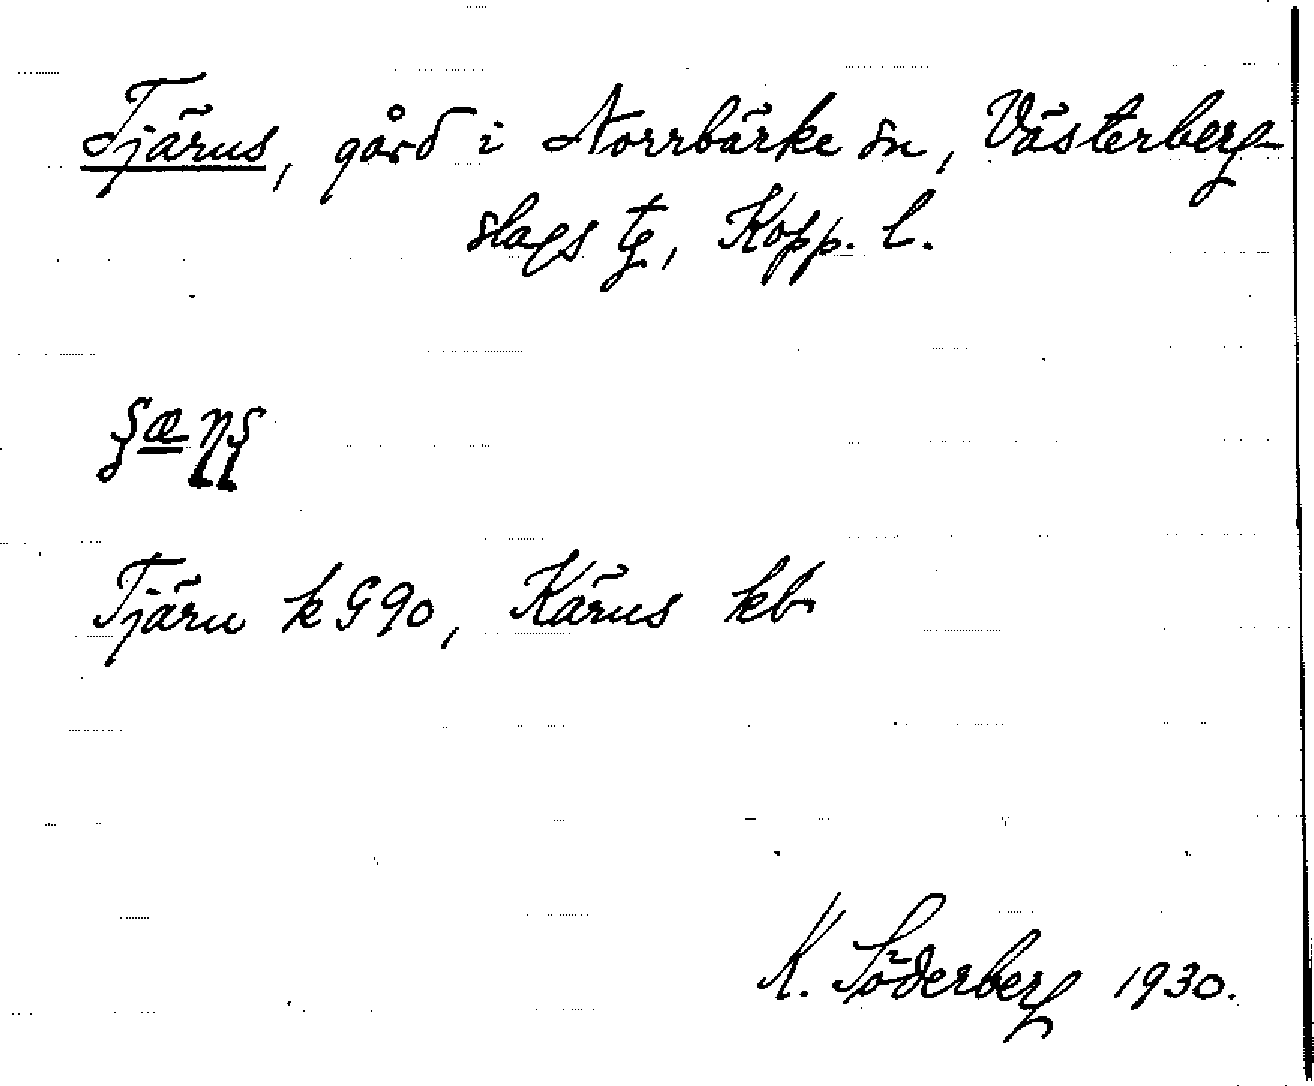 Tjärns, gård i Norrbärke sn, Västerberg-
slags tg, Kopp. l.
Tjärn k G 90, Kärns kb
K. Söderberg 1930.